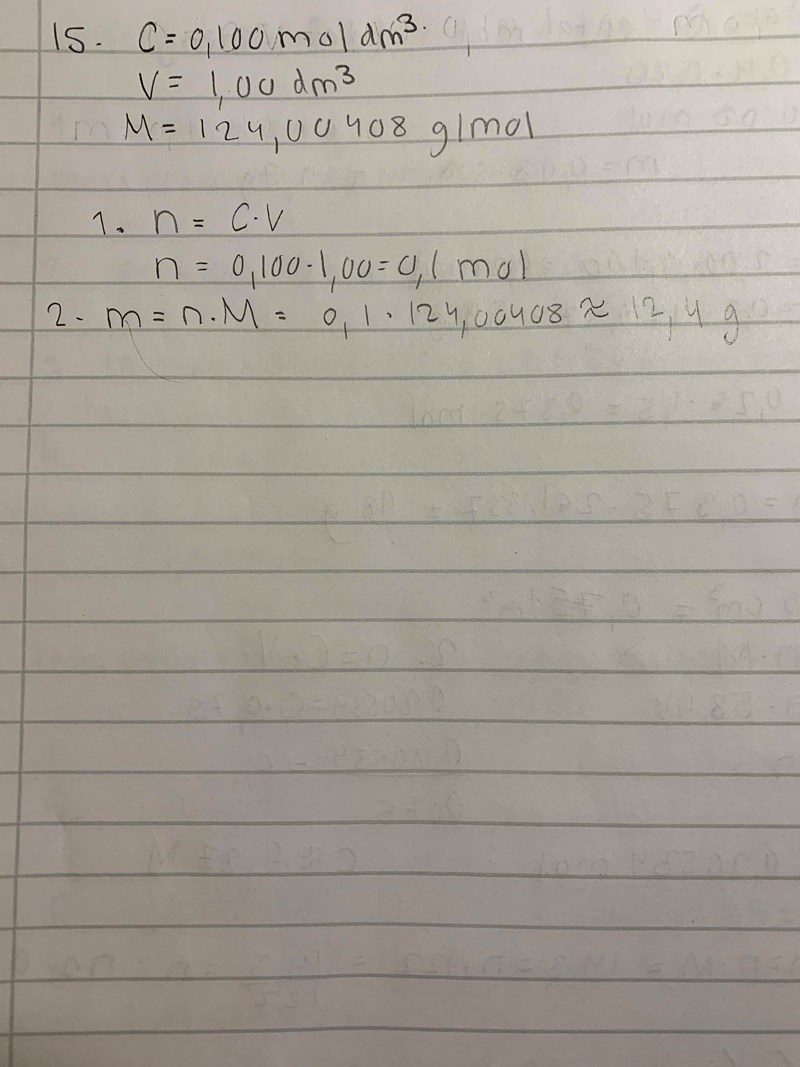 15. C = 0,100 mol dm³.
V = 1,00 dm³
M = 124,00408 g/mol
1. n = C·V
n = 0,100·1,00 = 0,1 mol
2. m = n·M = 0,1·124,00408 ≈ 12,4 g